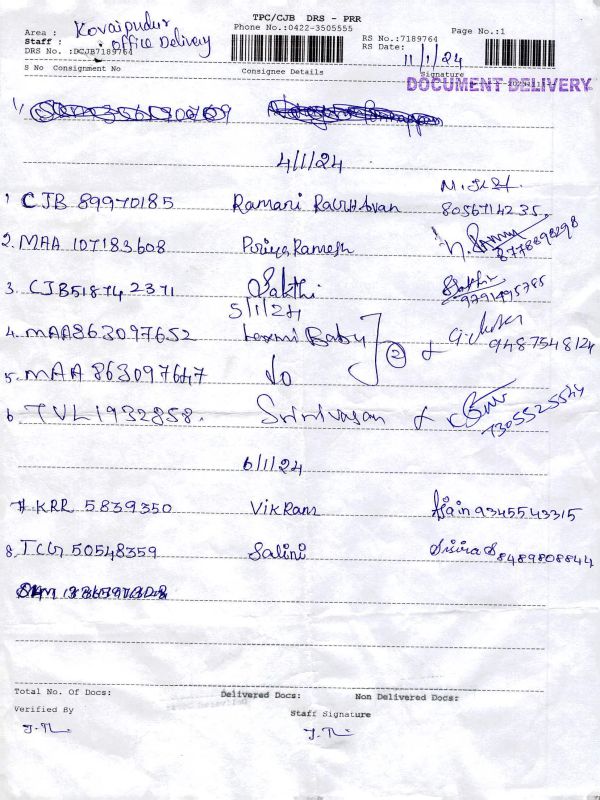 TPC/CJB DRS - PRR
Area : Kovaipudur Phone No.:0422-3505555 Page No.:1
Staff : Office Delivery RS No.:7189764
DRS No. :DCJB7189764 RS Date: 11/1/24
S No Consignment No Consignee Details Signature
DOCUMENT DELIVERY
4/1/24
1 CJB 89970185 Ramani 8056714235.
2. MAA 107183608 Priya Ramesh 8778898298
3. CJB518742371 Sakthi 9791495785
5/1/24
4. MAA863097652 Laxmi Baby 2 9487548124
5. MAA 863097647 Do
6 TVL1932858. Srinivasan 7305525524
6/1/24
7 KRR 5839350 Vikram 9345543315
8. TCG 50548359 Salini 8489808844
Total No. Of Docs: Delivered Docs: Non Delivered Docs:
Verified By Staff Signature